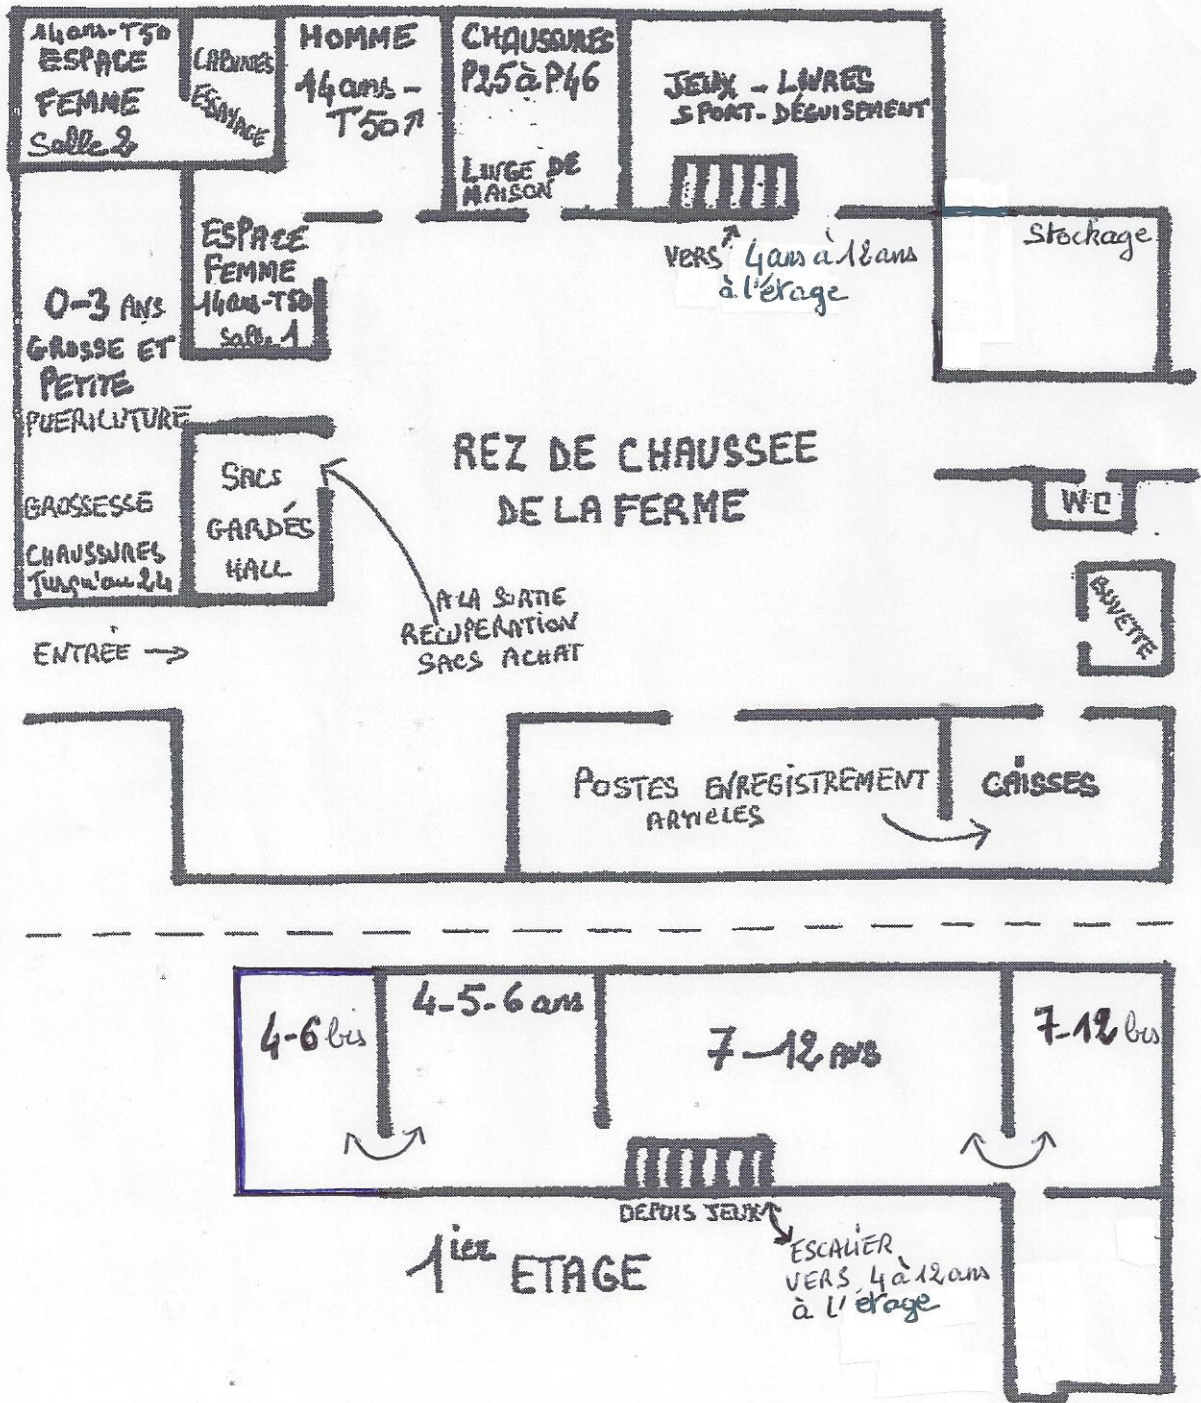 14ans-T50
ESPACE
FEMME
Salle 2
CABINES
ESSAYAGE
HOMME
14ans-
T50
CHAUSSURES
P25 à P46
LINGE DE
MAISON
JEUX - LIVRES
SPORT-DÉGUISEMENT
VERS 4ans à 12ans
à l'étage
Stockage
ESPACE
FEMME
14ans-T50
Salle 1
0-3 ANS
GROSSE ET
PETITE
PUERICUTURE
GROSSESSE
CHAUSSURES
Jusqu'au 24
SACS
GARDÉS
HALL
REZ DE CHAUSSEE
DE LA FERME
WC
BUVETTE
A LA SORTIE
RECUPERATION
SACS ACHAT
ENTRÉE →
POSTES ENREGISTREMENT
ARTICLES
CAISSES
4-6 bis
4-5-6 ans
7-12 ANS
7-12 bis
DEPUIS JEUX
1ier ETAGE
ESCALIER
VERS 4 à 12 ans
à l'étage